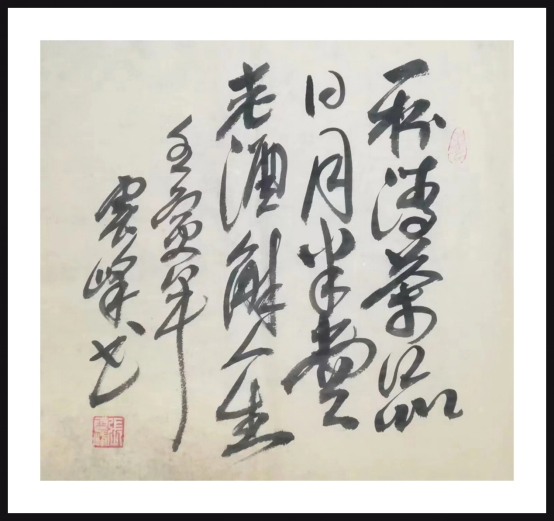 一杯清茶品
日月半壺
老酒解人生
壬寅年
雲峰书